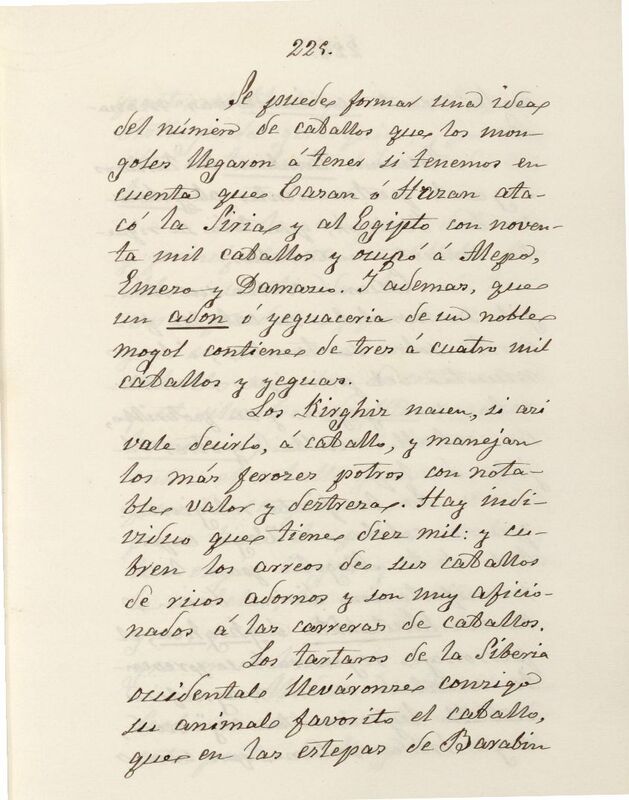 225.
Se puede formar una idea
del número de caballos que los mon-
goles llegaron á tener si tenemos en
cuenta que Cazan ó Hazan ata-
có la Siria y al Egipto con noven-
ta mil caballos y ocupó á Alepo,
Emeso y Damasco. Y ademas, que
un adon ó yeguaceria de un noble
mogol contiene de tres á cuatro mil
caballos y yeguas.
Los Kirghiz nacen, si asi
vale decirlo, á caballo, y manejan
los más feroces potros con nota-
ble valor y destreza. Hay indi-
viduo que tiene diez mil: y cu-
bren los arreos de sus caballos
de ricos adornos y son muy aficio-
nados á las carreras de caballos.
Los tartaros de la Siberia
occidental lleváronse consigo
su animal favorito el caballo,
que en las estepas de Barabin